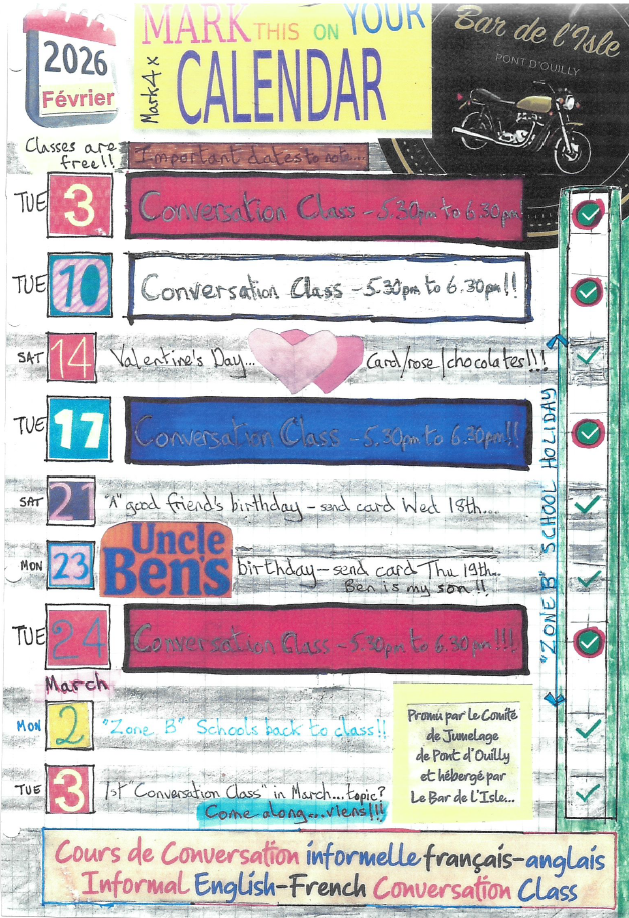 2026
Février
MARK THIS ON YOUR
Mark 4 x
CALENDAR
Bar de l'Isle
PONT D'OUILLY
Classes are
free!!
Important dates to note....
TUE 3 Conversation Class - 5.30pm to 6.30pm
TUE 10 Conversation Class - 5.30pm to 6.30pm!!
SAT 14 Valentine's Day... Card/rose/chocolates!!!
TUE 17 Conversation Class - 5.30pm to 6.30pm!!
SAT 21 "A" good friend's birthday - send card Wed 18th....
MON 23 Uncle
Ben's birthday - send card Thu 19th..
Ben is my son!!
TUE 24 Conversation Class - 5.30pm to 6.30pm!!!
"ZONE B" SCHOOL HOLIDAY
March
MON 2 "Zone B" Schools back to class!!
TUE 3 1st "Conversation Class" in March...topic?
Come along...viens!!!
Promu par le Comité
de Jumelage
de Pont d'Ouilly
et hébergé par
Le Bar de L'Isle...
Cours de Conversation informelle français-anglais
Informal English-French Conversation Class